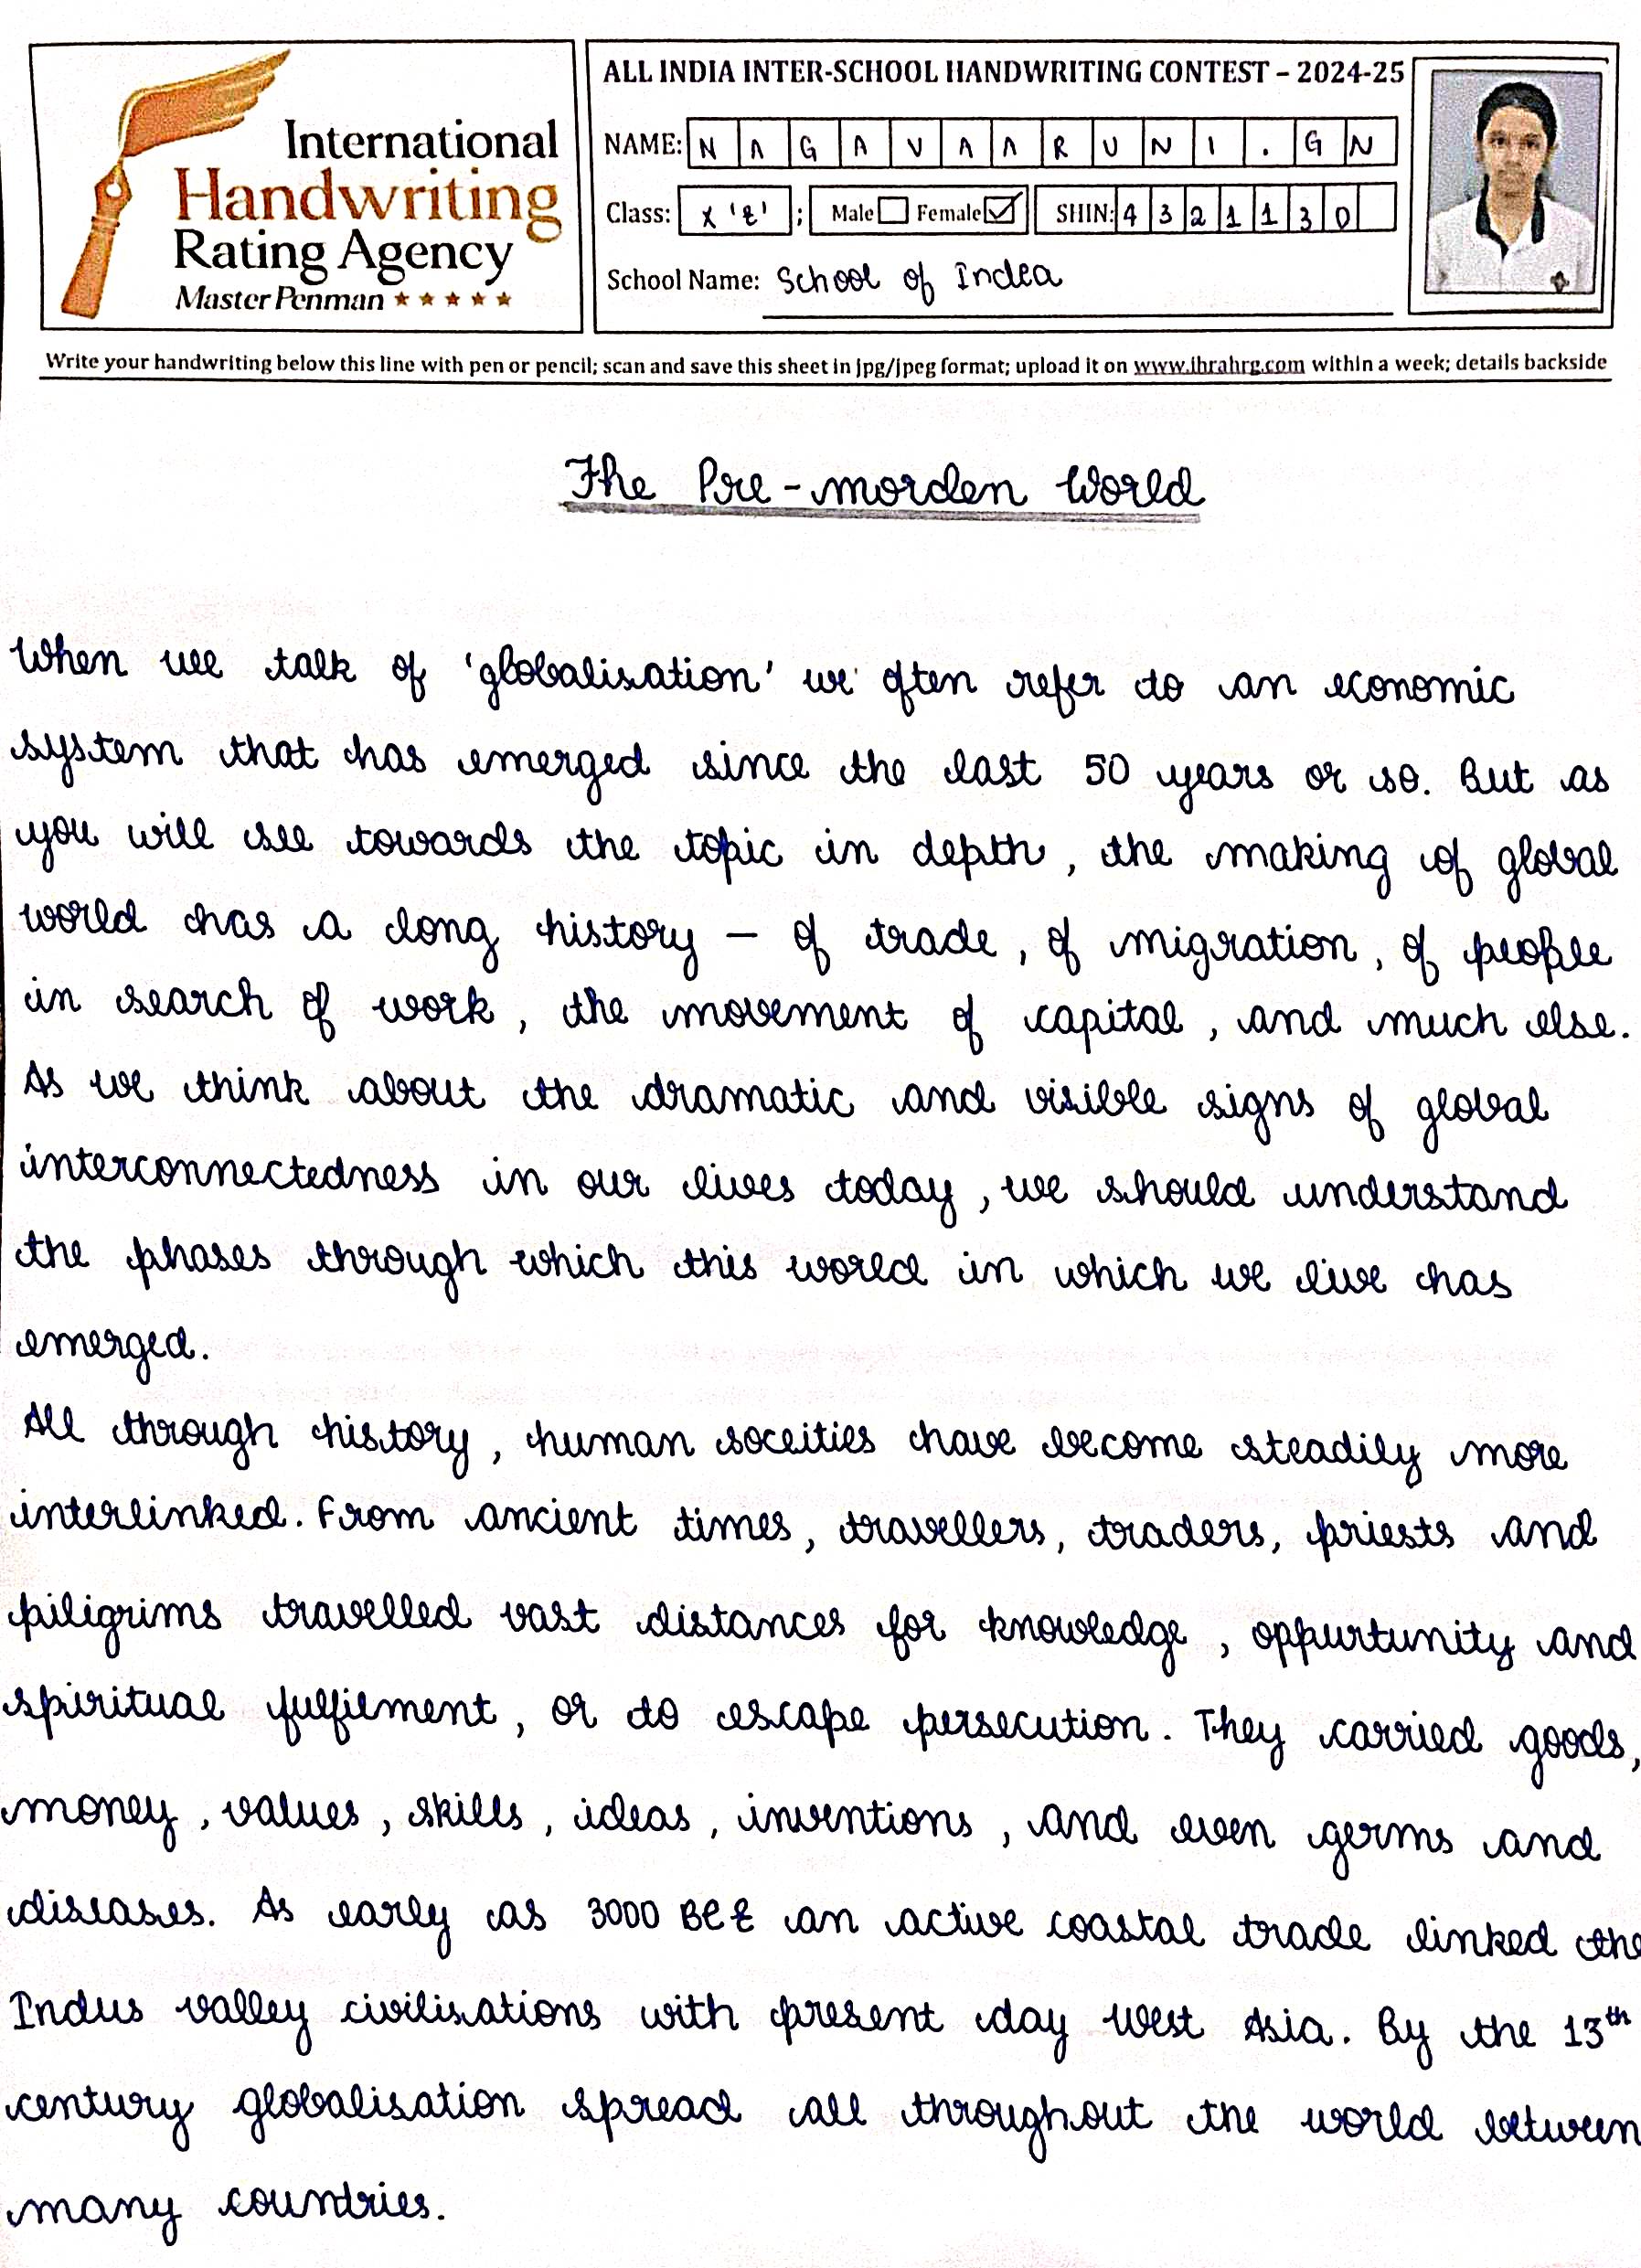 International
Handwriting
Rating Agency
Master Penman
ALL INDIA INTER-SCHOOL HANDWRITING CONTEST – 2024-25
NAME: NAGAVAARUNI.GN
Class: X 'E' ; Male Female SHIN: 4321130
School Name: School of India
Write your handwriting below this line with pen or pencil; scan and save this sheet in jpg/jpeg format; upload it on www.ihrahrg.com within a week; details backside
The Pre-morden World
When we talk of 'globalisation' we often refer to an economic
system that has emerged since the last 50 years or so. But as
you will see towards the topic in depth, the making of global
world has a long history – of trade, of migration, of people
in search of work, the movement of capital, and much else.
As we think about the dramatic and visible signs of global
interconnectedness in our lives today, we should understand
the phases through which this world in which we live has
emerged.
All through history, human soceities have become steadily more
interlinked. From ancient times, travellers, traders, priests and
piligrims travelled vast distances for knowledge, oppurtunity and
spiritual fulfilment, or to escape persecution. They carried goods,
money, values, skills, ideas, inventions, and even germs and
diseases. As early as 3000 BCE an active coastal trade linked the
Indus valley civilisations with present day West Asia. By the 13th
century globalisation spread all throughout the world between
many countries.